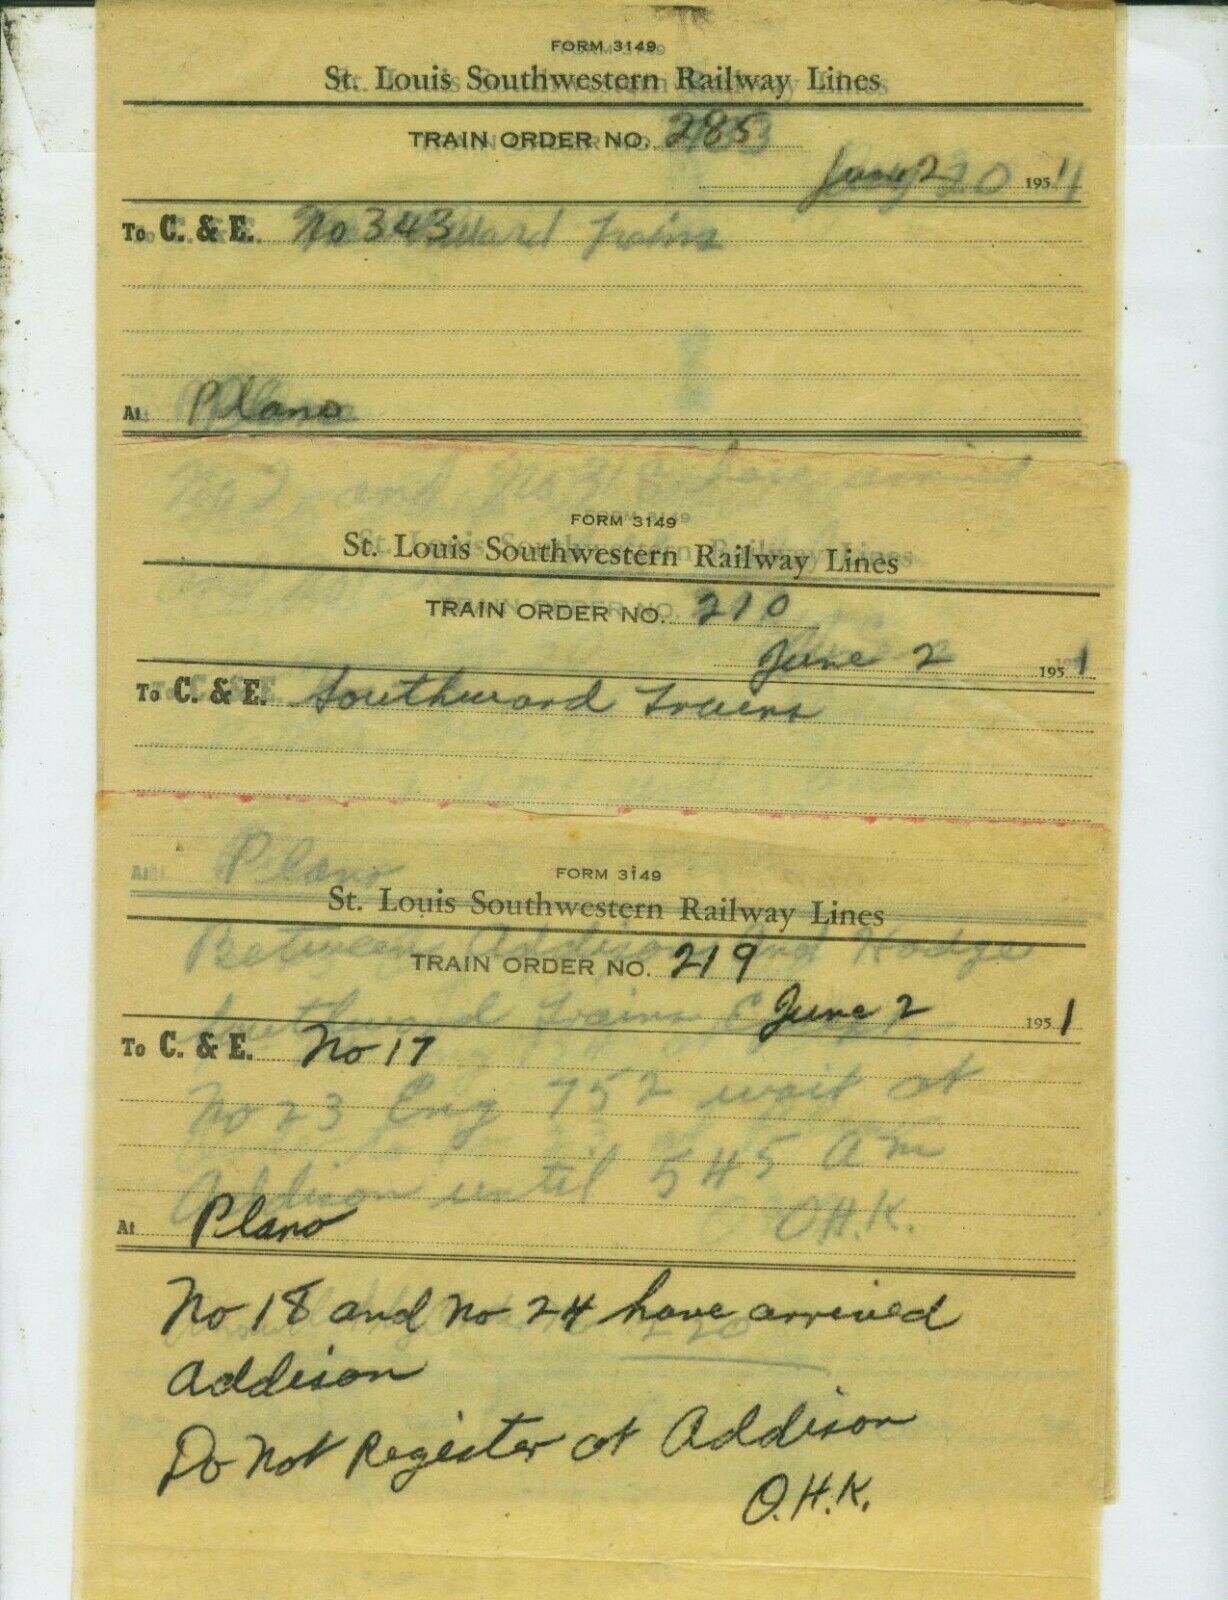 FORM 3149
St. Louis Southwestern Railway Lines
TRAIN ORDER NO. 285
2 1951
To C. & E. No 343
At Plano
No 2 and No 318 have arrived
FORM 3149
St. Louis Southwestern Railway Lines
TRAIN ORDER NO. 210
June 2 1951
To C. & E. Southward Trains
At Plano
FORM 3149
St. Louis Southwestern Railway Lines
Between Addison and Hodge
TRAIN ORDER NO. 219
Southward Trains
June 2 1951
To C. & E. No 17
No 23 Eng 752 wait at
Addison until 545 am
O.H.K.
At Plano
No 18 and No 24 have arrived
Addison
Do Not Register at Addison
O.H.K.